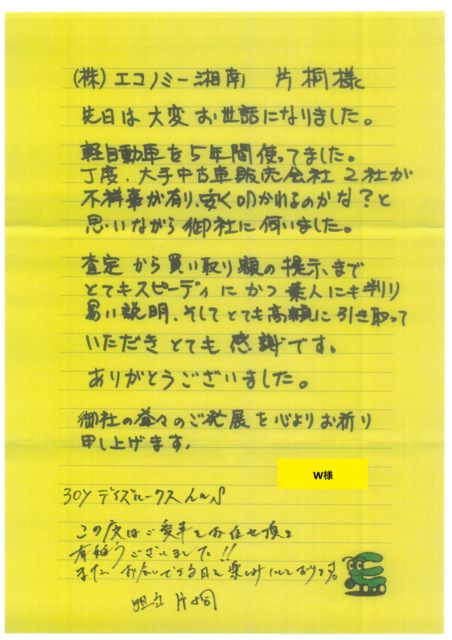 (株)エコノミー湘南 片桐様
先日は大変お世話になりました。
軽自動車を5年間使ってました。
丁度、大手中古車販売会社2社が
不祥事が有り、安く叩かれるのかな?と
思いながら御社に伺いました。
査定から買い取り額の提示まで
とてもスピーディにかつ素人にも判り
易い説明、そしてとても高額に引き取って
いただきとても感謝です。
ありがとうございました。
御社の益々のご発展を心よりお祈り
申し上げます。
W様
30Y デイズルークス
この度はご愛車をお任せ頂き
有難うございました!!
またお会いできる日を楽しみにしております。
担当 片桐